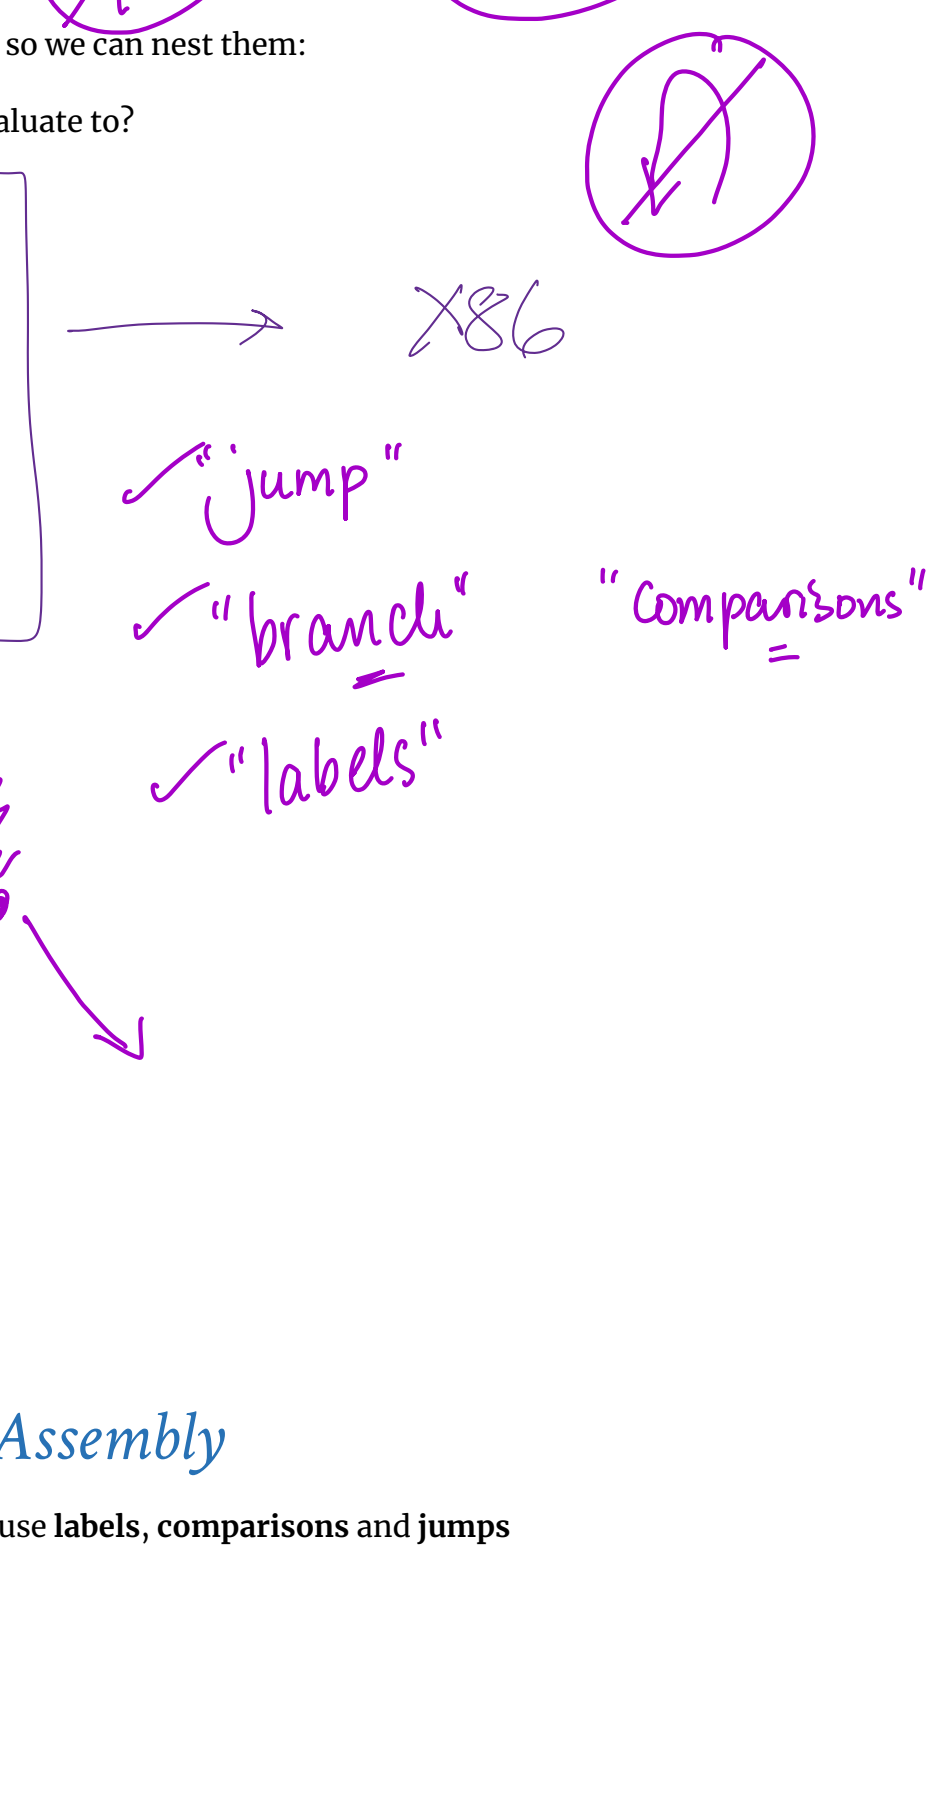 so we can nest them:
aluate to?
X86
"jump"
"branch" "comparisons"
"labels"
Assembly
use labels, comparisons and jumps